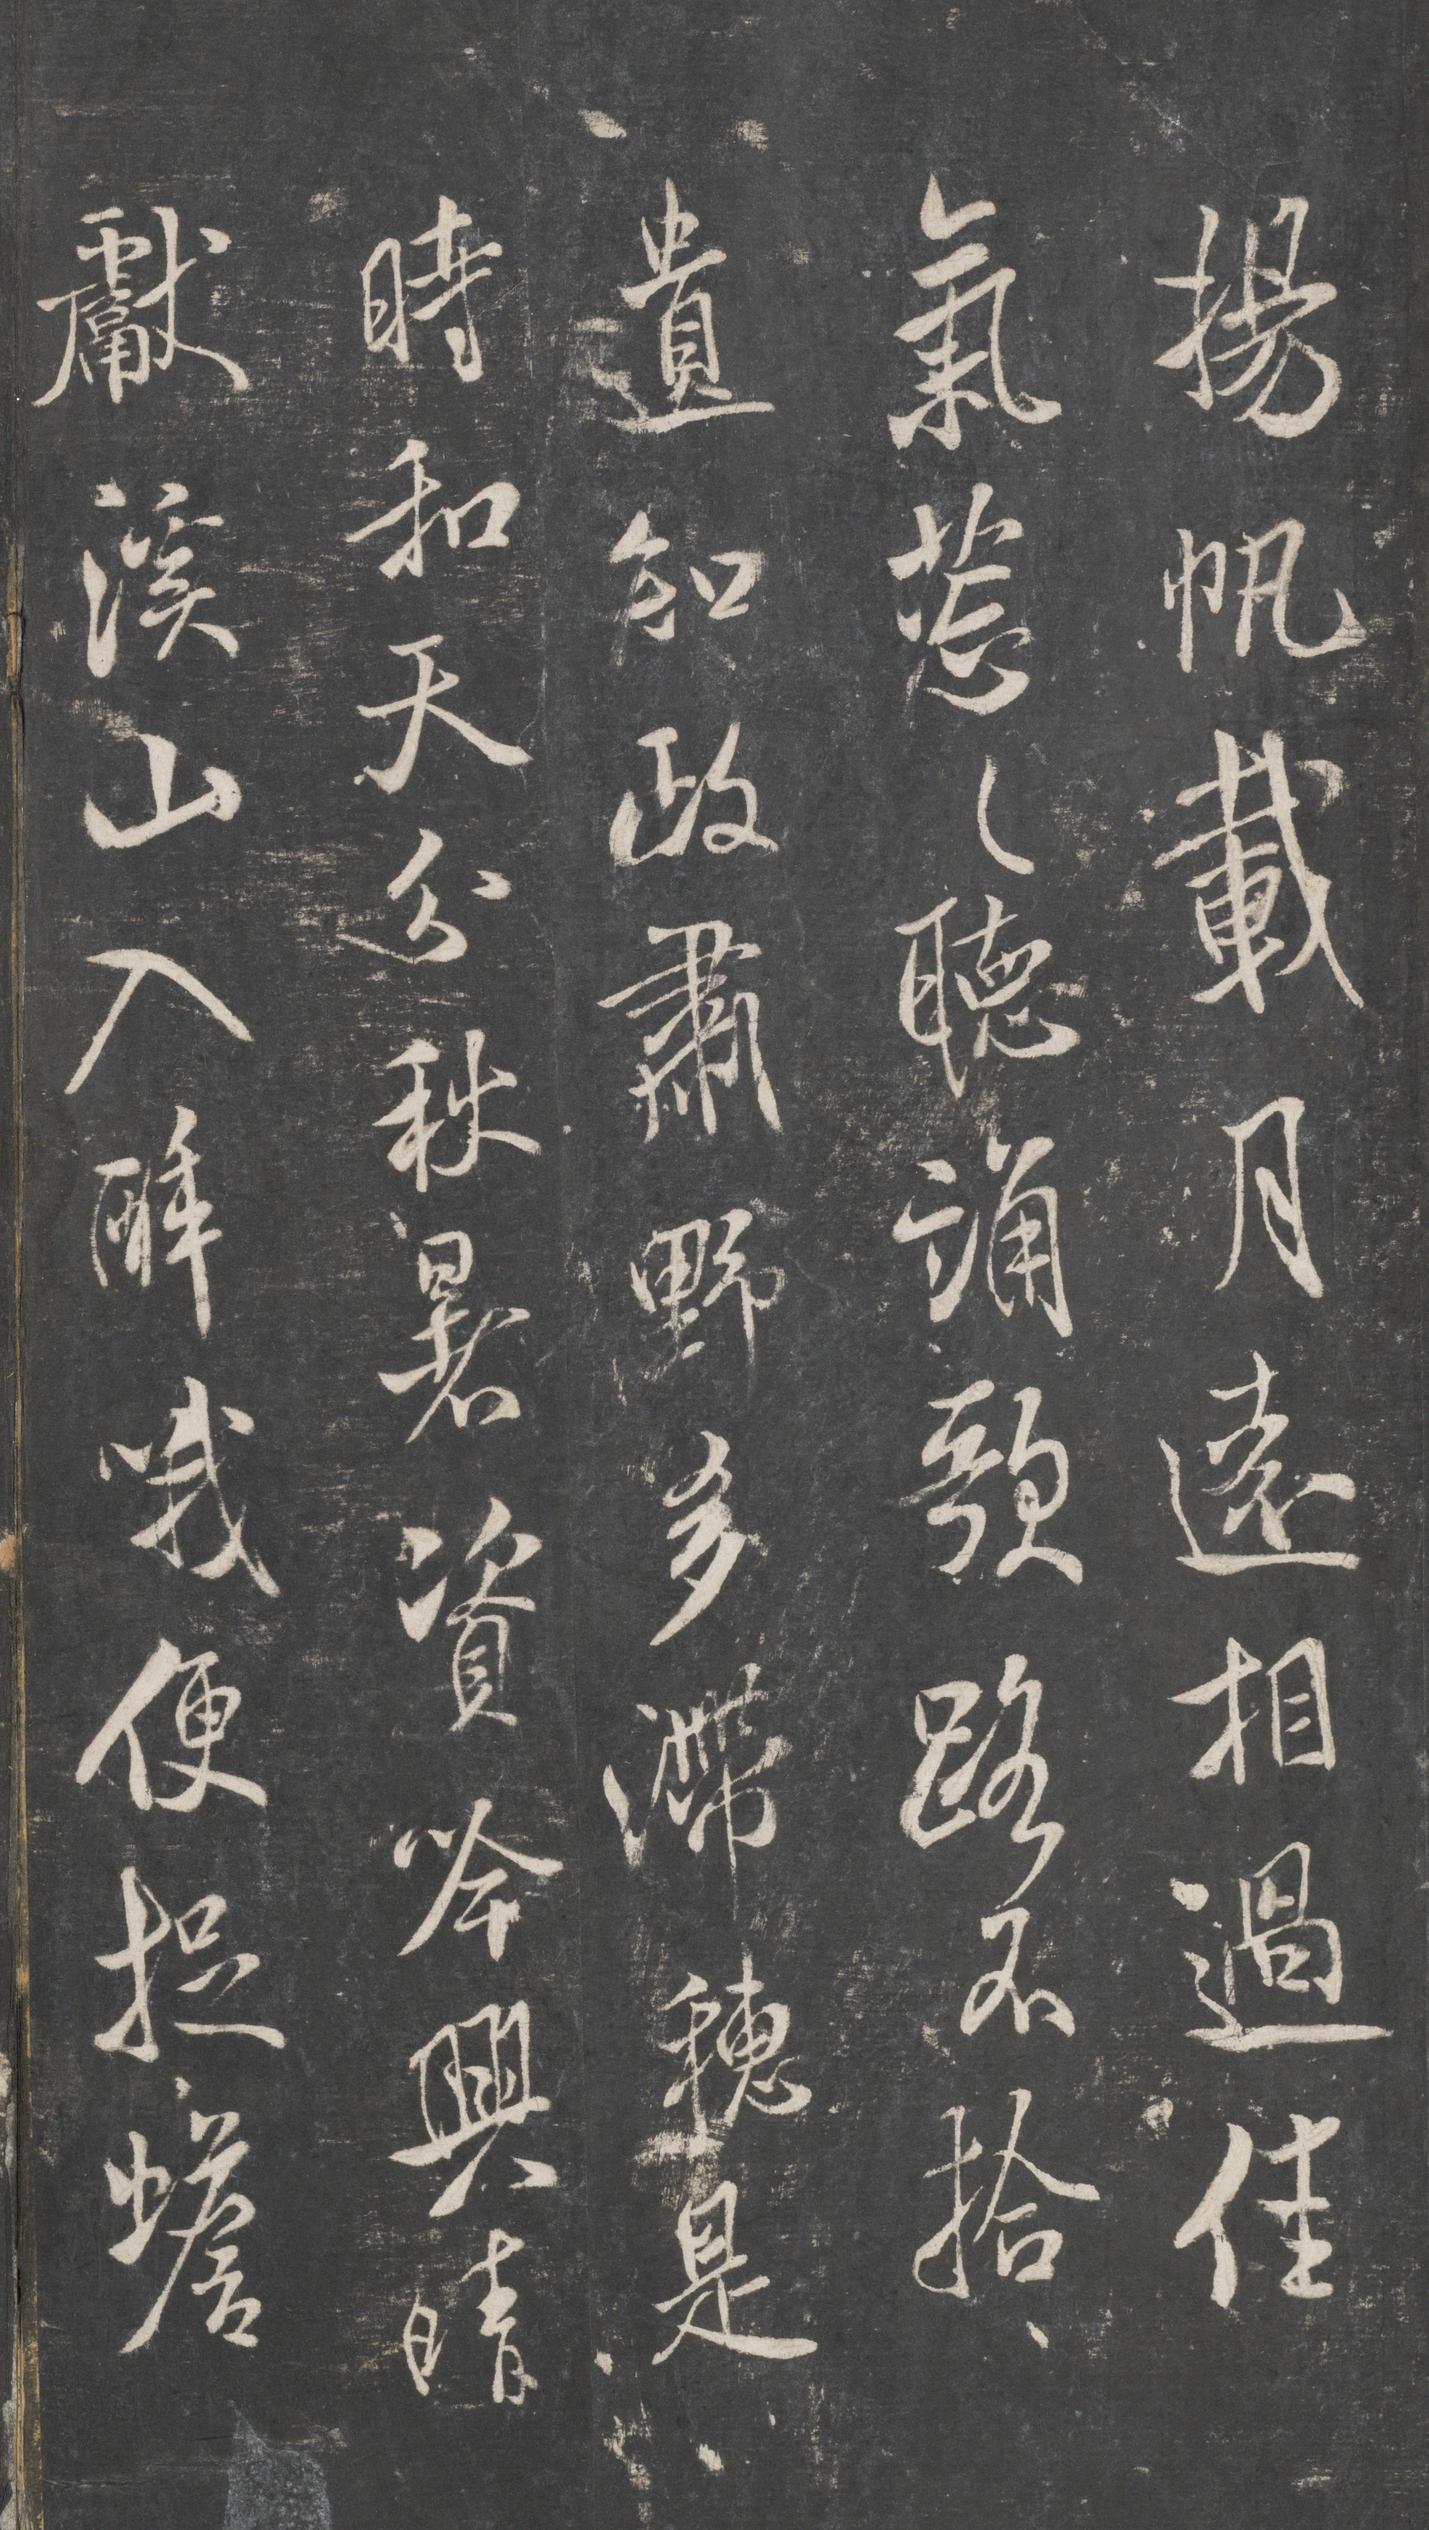 揚帆載月遠相過佳
氣葱々聽誦歌路不拾
遺知政肅野多滯穗是
時和天分秋暑資吟興晴
獻溪山入醉哦便捉蟾